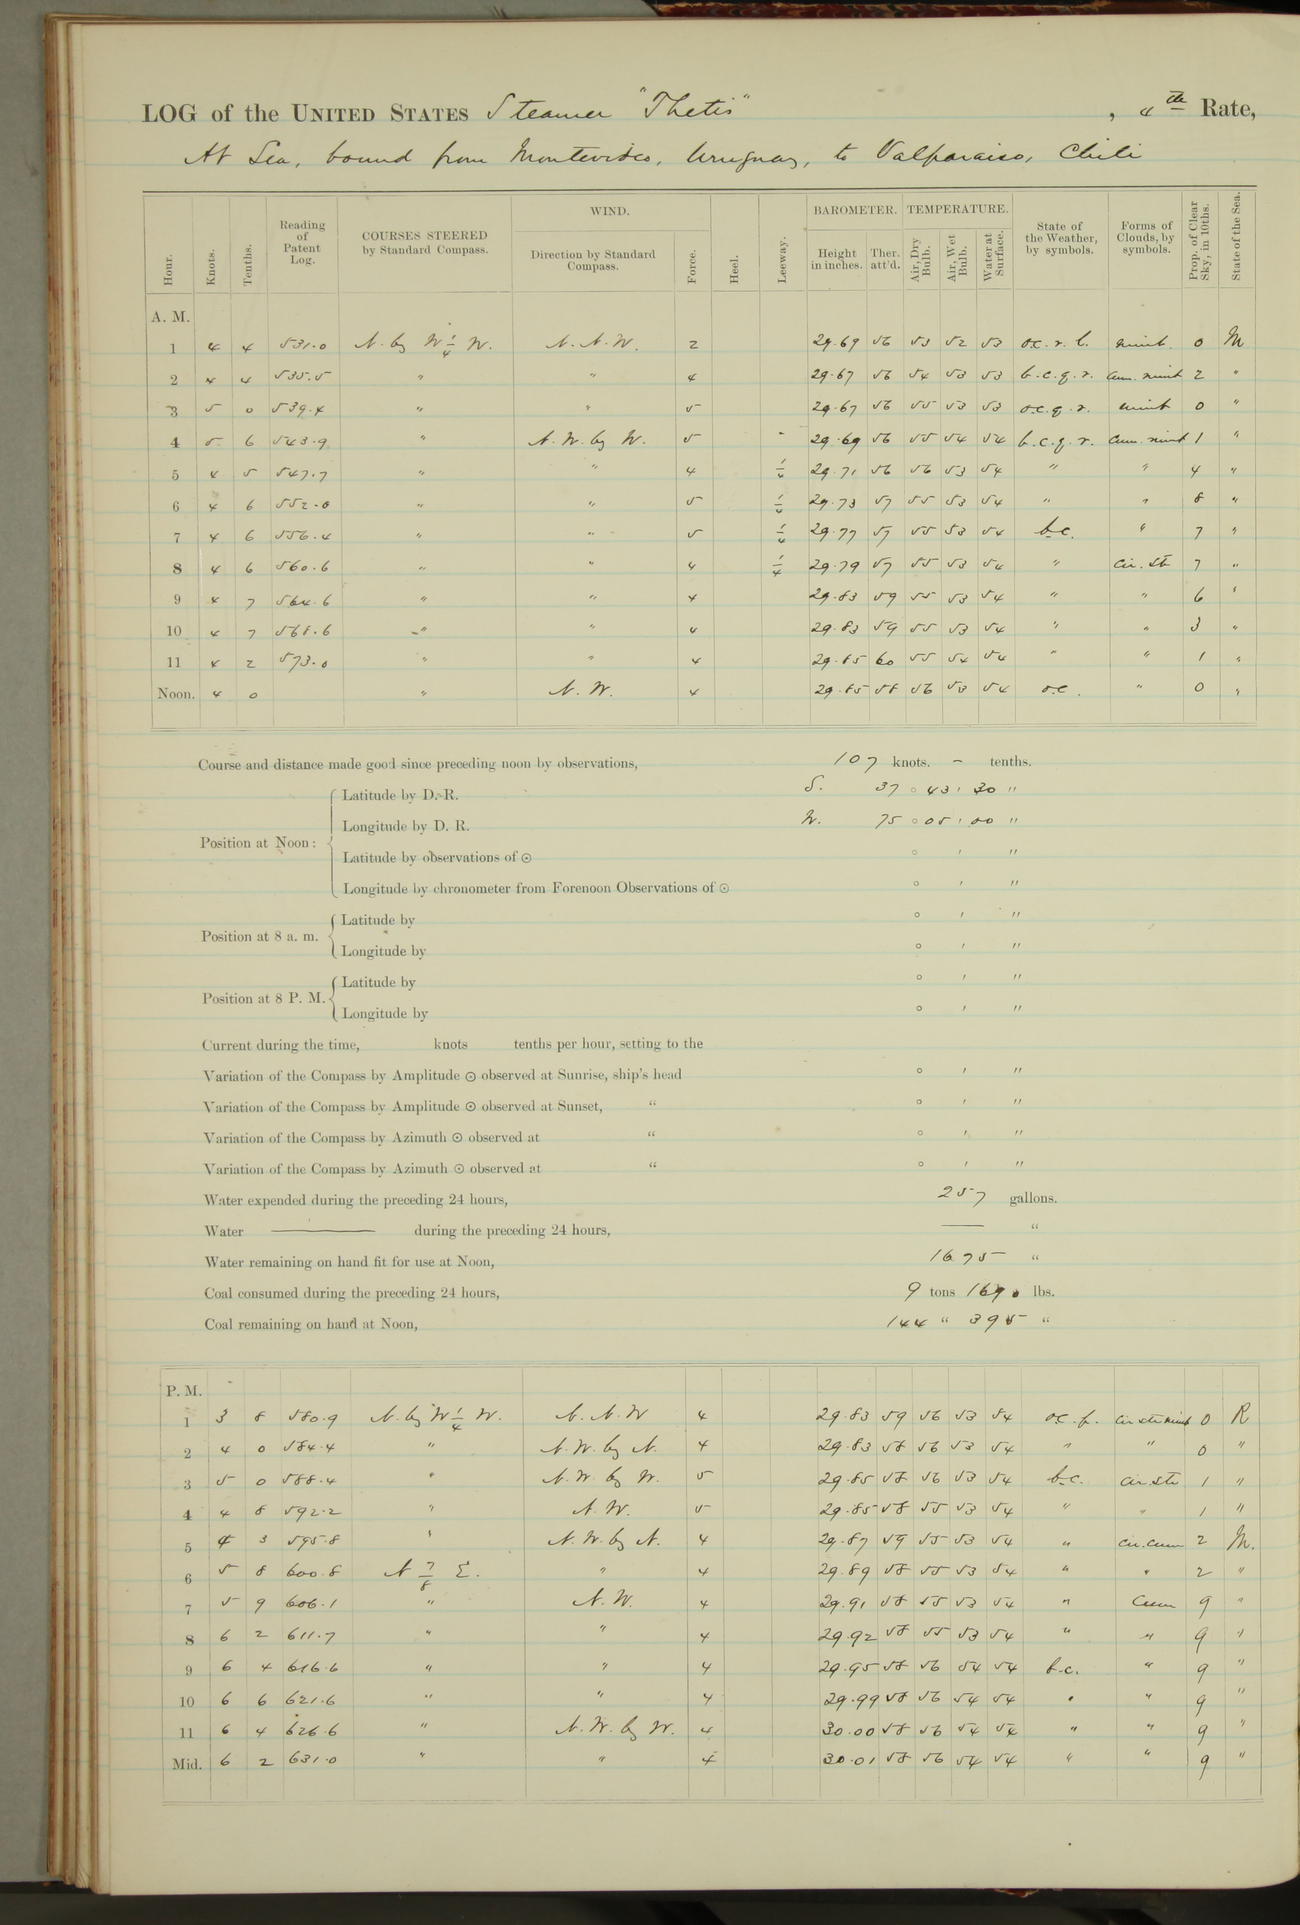 LOG of the UNITED STATES Steamer "Thetis", 4th Rate,
At Sea, bound from Montevideo, Uruguay, to Valparaiso, Chili
Hour. Knots. Tenths. Reading of Patent Log. COURSES STEERED by Standard Compass. WIND. Direction by Standard Compass. Force. Heel. Leeway. BAROMETER. Height in inches. Ther. att'd. TEMPERATURE. Air, Dry Bulb. Air, Wet Bulb. Water at Surface. State of the Weather, by symbols. Forms of Clouds, by symbols. Prop. of Clear Sky, in 10ths. State of the Sea.
A. M.
1 4 4 531.0 N. by W 1/4 W. N. N. W. 2 29.69 56 53 52 53 o.c. r. l. nimb. 0 M
2 4 4 535.5 " " 4 29.67 56 54 53 53 b.c.q.r. cum. nimb 2 "
3 5 0 539.4 " " 5 29.67 56 55 53 53 o.c.q.r. nimb 0 "
4 5 6 543.9 " N. W. by W. 5 " 29.69 56 55 54 54 b.c.q.r. cum. nimb 1 "
5 4 5 547.7 " " 4 1/4 29.71 56 56 53 54 " " 4 "
6 4 6 552.0 " " 5 1/4 29.73 57 55 53 54 " " 8 "
7 4 6 556.4 " " 5 1/4 29.77 57 55 53 54 b.c. " 7 "
8 4 6 560.6 " " 4 1/4 29.79 57 55 53 54 " cir. st 7 "
9 4 7 564.6 " " 4 29.83 59 55 53 54 " " 6 "
10 4 7 568.6 " " 4 29.83 59 55 53 54 " " 3 "
11 4 2 573.0 " " 4 29.85 60 55 54 54 " " 1 "
Noon. 4 0 " N. W. 4 29.85 58 56 53 54 o.c. " 0 "
Course and distance made good since preceding noon by observations, 107 knots. – tenths.
Position at Noon: Latitude by D. R. S. 37 ° 43 ' 30 "
Longitude by D. R. W. 75 ° 05 ' 00 "
Latitude by observations of ☉ ° ' "
Longitude by chronometer from Forenoon Observations of ☉ ° ' "
Position at 8 a. m. Latitude by ° ' "
Longitude by ° ' "
Position at 8 P. M. Latitude by ° ' "
Longitude by ° ' "
Current during the time, knots tenths per hour, setting to the
Variation of the Compass by Amplitude ☉ observed at Sunrise, ship's head ° ' "
Variation of the Compass by Amplitude ☉ observed at Sunset, " ° ' "
Variation of the Compass by Azimuth ☉ observed at " ° ' "
Variation of the Compass by Azimuth ☉ observed at " ° ' "
Water expended during the preceding 24 hours, 257 gallons.
Water —— during the preceding 24 hours, —— "
Water remaining on hand fit for use at Noon, 1675 "
Coal consumed during the preceding 24 hours, 9 tons 1690 lbs.
Coal remaining on hand at Noon, 144 " 395 "
P. M.
1 3 8 580.9 N. by W 1/4 W. N. N. W 4 29.83 59 56 53 54 o.c. p. cir. str nimb 0 R
2 4 0 584.4 " N. W. by N. 4 29.83 58 56 53 54 " " 0 "
3 5 0 588.4 " N. W. by W. 5 29.85 58 56 53 54 b.c. cir. str 1 "
4 4 8 592.2 " N. W. 5 29.85 58 55 53 54 " " 1 "
5 4 3 595.8 " N. W. by N. 4 29.87 59 55 53 54 " cir. cum 2 M.
6 5 8 600.8 N 7/8 E. " 4 29.89 58 55 53 54 " " 2 "
7 5 9 606.1 " N. W. 4 29.91 58 55 53 54 " Cum 9 "
8 6 2 611.7 " " 4 29.92 58 55 53 54 " " 9 "
9 6 4 616.6 " " 4 29.95 58 56 54 54 b.c. " 9 "
10 6 6 621.6 " " 4 29.99 58 56 54 54 " " 9 "
11 6 4 626.6 " N. W. by W. 4 30.00 58 56 54 54 " " 9 "
Mid. 6 2 631.0 " " 4 30.01 58 56 54 54 " " 9 "